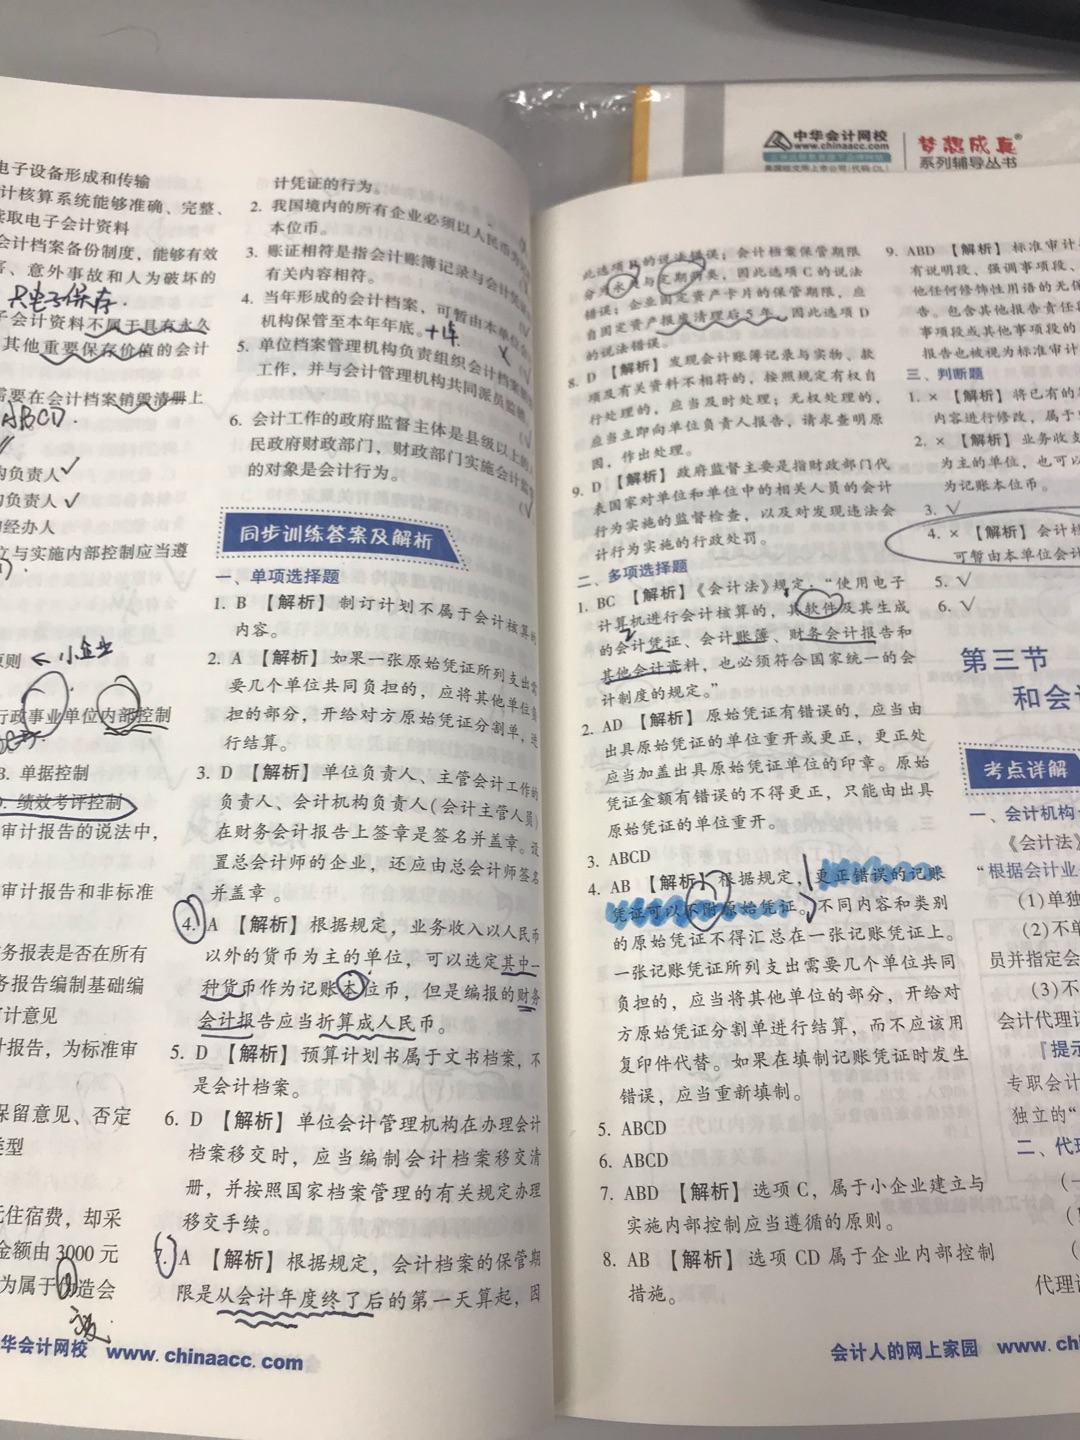 中华会计网校
www.chinaacc.com
梦想成真
系列辅导丛书
电子设备形成和传输
计核算系统能够准确、完整、
读取电子会计资料
会计档案备份制度，能够有效
害、意外事故和人为破坏的
只电子保存.
子会计资料不属于具有永久
其他重要保存价值的会计
需要在会计档案销毁清册上
ABCD.
构负责人✓
构负责人✓
经办人
立与实施内部控制应当遵
原则 ← 小企业
行政事业单位内部控制
B. 单据控制
D. 绩效考评控制
审计报告的说法中，
审计报告和非标准
务报表是否在所有
务报告编制基础编
计意见
计报告，为标准审
保留意见、否定
类型
元住宿费，却采
金额由3000元
为属于伪造会
变
华会计网校 www.chinaacc.com
计凭证的行为。
2. 我国境内的所有企业必须以人民币为
本位币。
3. 账证相符是指会计账簿记录与会计凭证
有关内容相符。
4. 当年形成的会计档案，可暂由本单位会
机构保管至本年年底。+1年
5. 单位档案管理机构负责组织会计档案
工作，并与会计管理机构共同派员监销。
6. 会计工作的政府监督主体是县级以上的人
民政府财政部门，财政部门实施会计监督
的对象是会计行为。
同步训练答案及解析
一、单项选择题
1. B 【解析】制订计划不属于会计核算的
内容。
2. A 【解析】如果一张原始凭证所列支出需
要几个单位共同负担的，应将其他单位负
担的部分，开给对方原始凭证分割单，进
行结算。
3. D 【解析】单位负责人、主管会计工作的
负责人、会计机构负责人(会计主管人员)
在财务会计报告上签章是签名并盖章。设
置总会计师的企业，还应由总会计师签名
并盖章。
4. A 【解析】根据规定，业务收入以人民币
以外的货币为主的单位，可以选定其中一
种货币作为记账本位币，但是编报的财务
会计报告应当折算成人民币。
5. D 【解析】预算计划书属于文书档案，不
是会计档案。
6. D 【解析】单位会计管理机构在办理会计
档案移交时，应当编制会计档案移交清
册，并按照国家档案管理的有关规定办理
移交手续。
7. A 【解析】根据规定，会计档案的保管期
限是从会计年度终了后的第一天算起，因
此选项B的说法错误；会计档案保管期限
分为永久与定期两类，因此选项C的说法
错误；企业固定资产卡片的保管期限，应
自固定资产报废清理后5年，因此选项D
的说法错误。
8. D 【解析】发现会计账簿记录与实物、款
项及有关资料不相符的，按照规定有权自
行处理的，应当及时处理；无权处理的，
应当立即向单位负责人报告，请求查明原
因，作出处理。
9. D 【解析】政府监督主要是指财政部门代
表国家对单位和单位中的相关人员的会计
行为实施的监督检查，以及对发现违法会
计行为实施的行政处罚。
二、多项选择题
1. BC 【解析】《会计法》规定：“使用电子
计算机进行会计核算的，其软件及其生成
的会计凭证、会计账簿、财务会计报告和
其他会计资料，也必须符合国家统一的会
计制度的规定。”
2. AD 【解析】原始凭证有错误的，应当由
出具原始凭证的单位重开或更正，更正处
应当加盖出具原始凭证单位的印章。原始
凭证金额有错误的不得更正，只能由出具
原始凭证的单位重开。
3. ABCD
4. AB 【解析】根据规定，更正错误的记账
凭证可以不附原始凭证。不同内容和类别
的原始凭证不得汇总在一张记账凭证上。
一张记账凭证所列支出需要几个单位共同
负担的，应当将其他单位的部分，开给对
方原始凭证分割单进行结算，而不应该用
复印件代替。如果在填制记账凭证时发生
错误，应当重新填制。
5. ABCD
6. ABCD
7. ABD 【解析】选项C，属于小企业建立与
实施内部控制应当遵循的原则。
8. AB 【解析】选项CD属于企业内部控制
措施。
9. ABD 【解析】标准审计
有说明段、强调事项段、
他任何修饰性用语的无保
告。包含其他报告责任
事项段或其他事项段的
报告也被视为标准审计
三、判断题
1. × 【解析】将已有的
内容进行修改，属于
2. × 【解析】业务收支
为主的单位，也可以
为记账本位币。
3. √
4. × 【解析】会计
可暂由本单位会计
5. √
6. √
第三节
和会计
考点详解
一、会计机构
《会计法》
“根据会计业
(1)单独
(2)不单
员并指定会
(3)不
会计代理记
『提示
专职会计
独立的“
二、代理
代理记
会计人的网上家园 www.